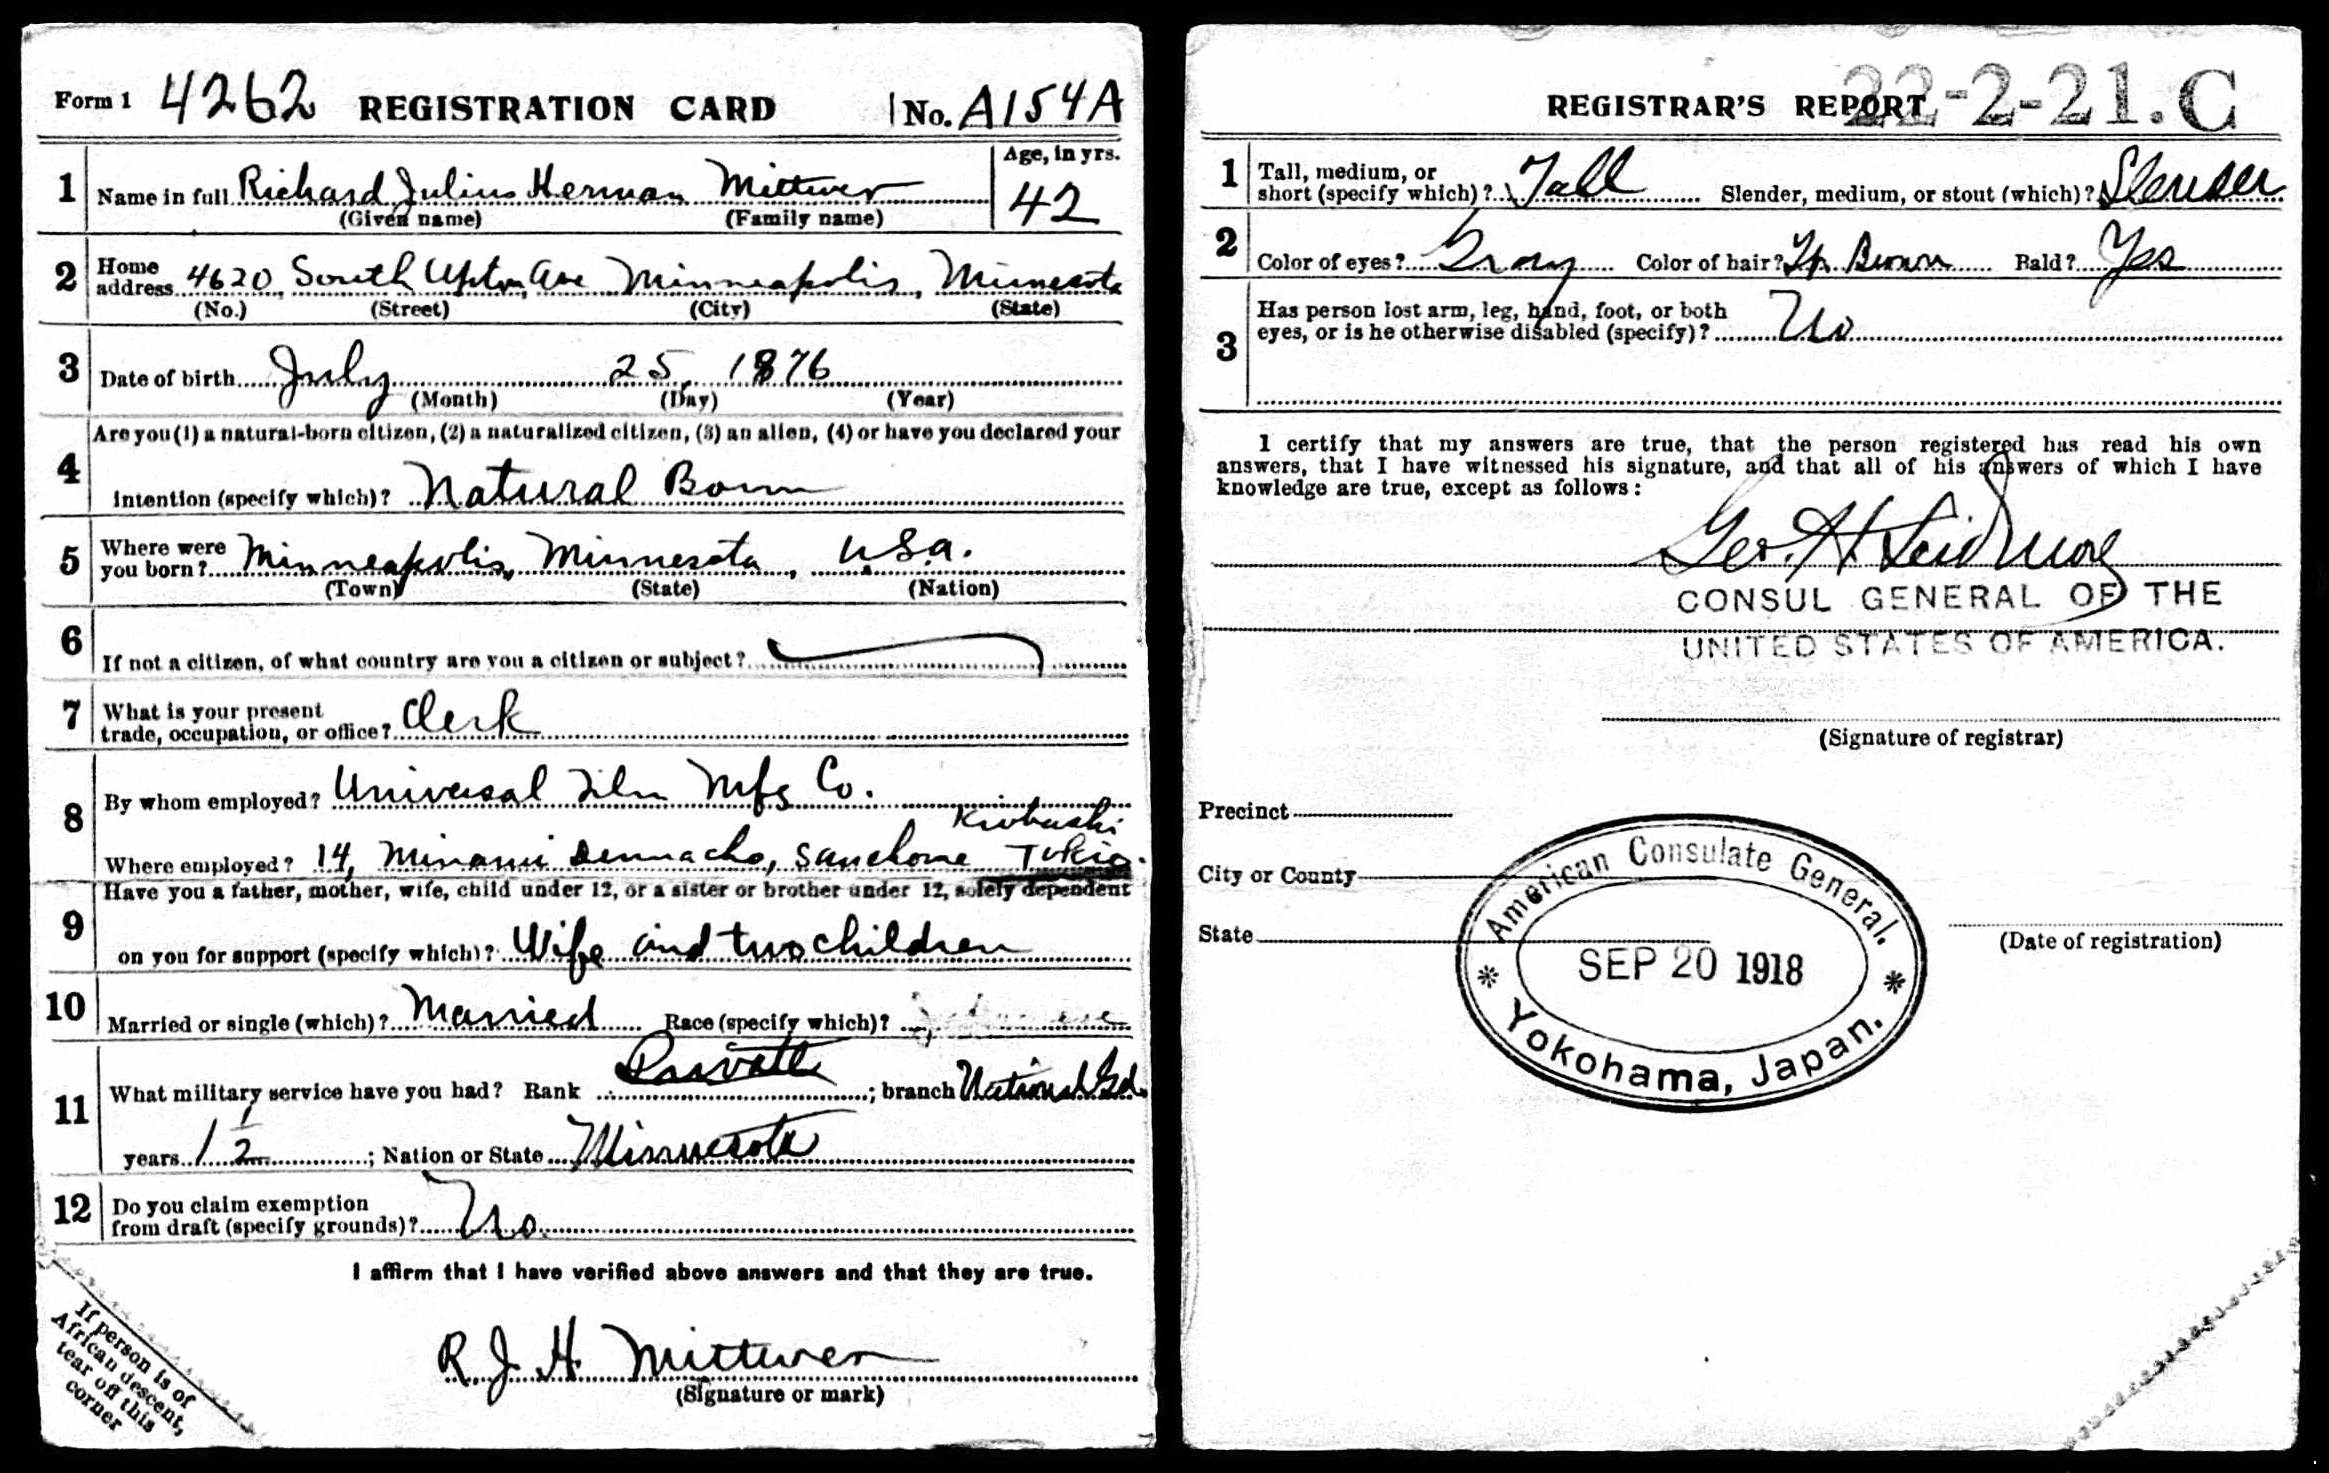 Form 1 4262 REGISTRATION CARD No. A154A
1 Name in full Richard Julius Herman Mittwer Age, in yrs. 42
(Given name) (Family name)
2 Home address 4620, South Upton Ave Minneapolis, Minnesota
(No.) (Street) (City) (State)
3 Date of birth July 25, 1876
(Month) (Day) (Year)
4 Are you (1) a natural-born citizen, (2) a naturalized citizen, (3) an alien, (4) or have you declared your
intention (specify which)? Natural Born
5 Where were you born? Minneapolis, Minnesota, U.S.A.
(Town) (State) (Nation)
6 If not a citizen, of what country are you a citizen or subject?
7 What is your present
trade, occupation, or office? Clerk
8 By whom employed? Universal Film Mfg Co.
Kiobashi
Where employed? 14, Minami Denmacho, Sanchome Tokio.
9 Have you a father, mother, wife, child under 12, or a sister or brother under 12, solely dependent
on you for support (specify which)? Wife and two children
10 Married or single (which)? Married Race (specify which)?
11 What military service have you had? Rank Private ; branch National Gd.
years 1 1/2 ; Nation or State Minnesota
12 Do you claim exemption
from draft (specify grounds)? No.
I affirm that I have verified above answers and that they are true.
R. J. H. Mittwer
(Signature or mark)
If person is of
African descent,
tear off this
corner
REGISTRAR'S REPORT 22-2-21. C
1 Tall, medium, or
short (specify which)? Tall Slender, medium, or stout (which)? Slender
2 Color of eyes? Gray Color of hair? Brown Bald? Yes
3 Has person lost arm, leg, hand, foot, or both
eyes, or is he otherwise disabled (specify)? No
I certify that my answers are true, that the person registered has read his own
answers, that I have witnessed his signature, and that all of his answers of which I have
knowledge are true, except as follows:
Geo. H. Scidmore
CONSUL GENERAL OF THE
UNITED STATES OF AMERICA.
(Signature of registrar)
Precinct
City or County
State
(Date of registration)
American Consulate General.
SEP 20 1918
* Yokohama, Japan. *